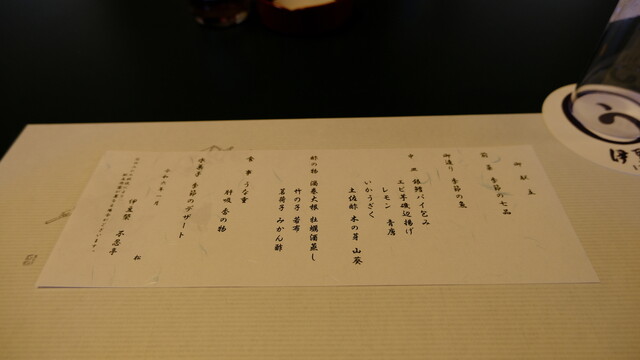 御献立
前菜 季節の七品
御造り 季節の魚
中皿 銀鱈パイ包み
エビ芋磯辺揚げ
レモン 青唐
いかうざく
土佐酢 木の芽 山葵
酢の物 渦巻大根 牡蠣酒蒸し
竹の子 若布
茗荷子 みかん酢
食事 うな重
肝吸 香の物
水菓子 季節のデザート
令和六年一月
伊豆榮 不忍亭
松
う